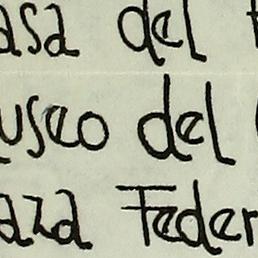 asa del
useo del
aza Feder